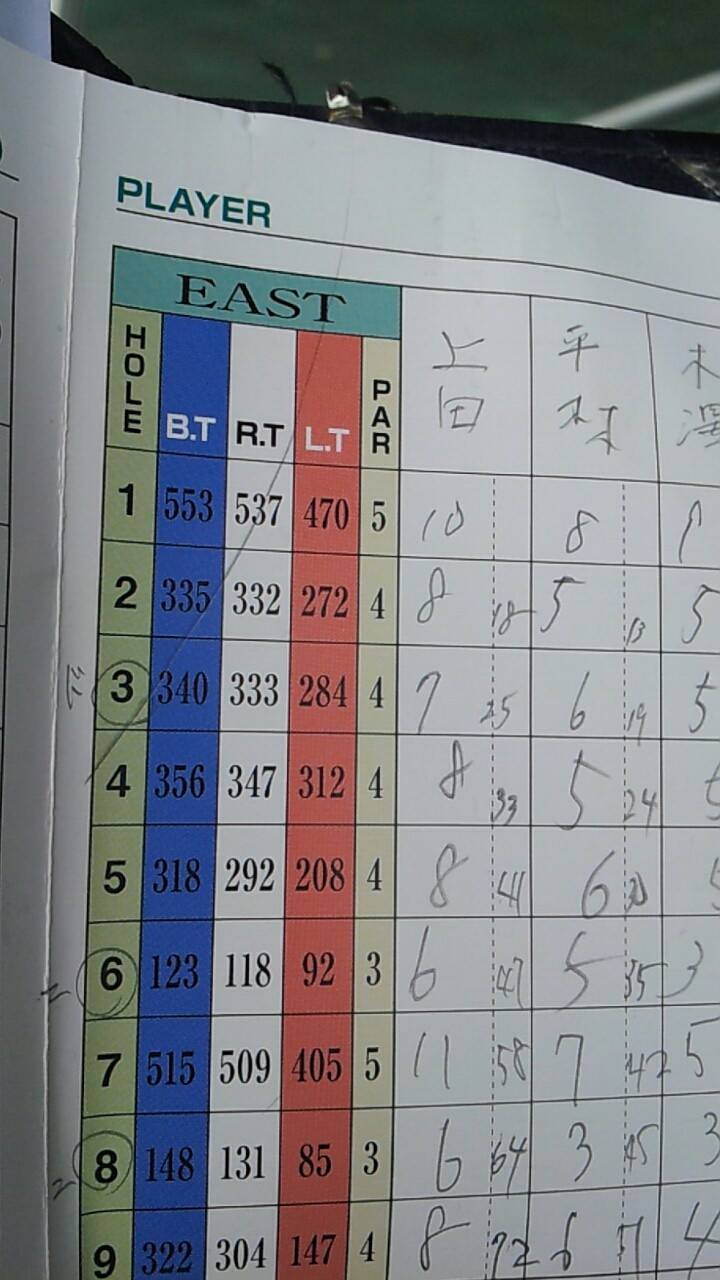 PLAYER
EAST
HOLE B.T R.T L.T PAR 上田 平村 木澤
1 553 537 470 5 10 8
2 335 332 272 4 8 18 5 13 5
3 340 333 284 4 7 25 6 19 5
4 356 347 312 4 8 33 5 24 5
5 318 292 208 4 8 41 6 30 5
6 123 118 92 3 6 47 5 35 3
7 515 509 405 5 11 58 7 42 5
8 148 131 85 3 6 64 3 45 3
9 322 304 147 4 8 72 6 4